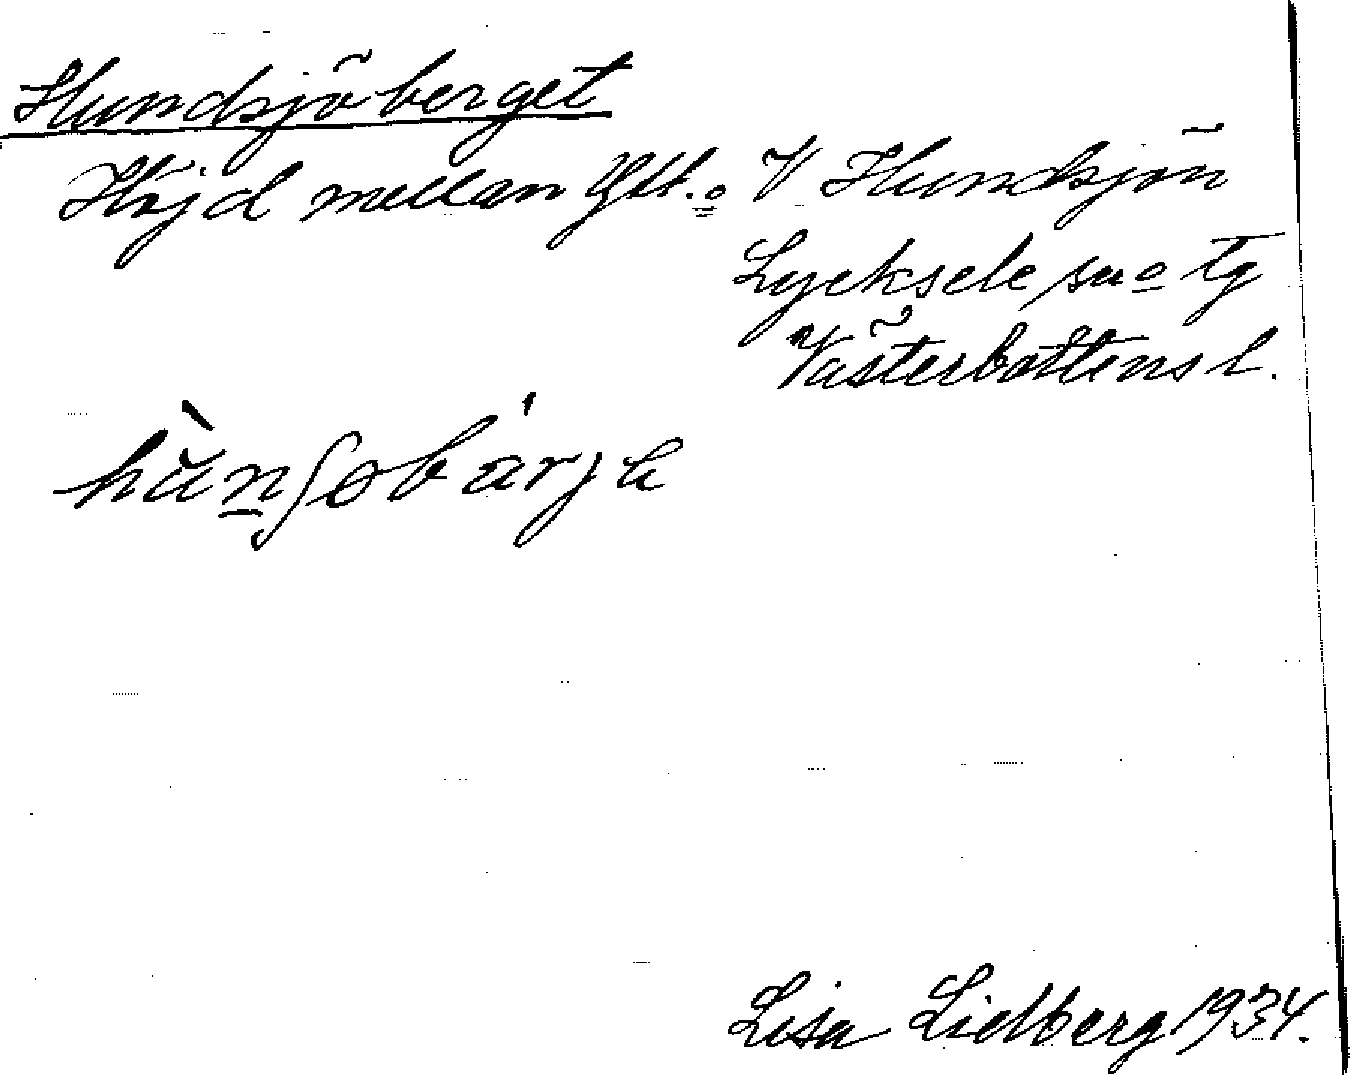 Hundsjöberget
Höjd mellan Yttr. o V Hundsjön
Lycksele sn o tg
Västerbottens l.
Lisa Lidberg 1934.